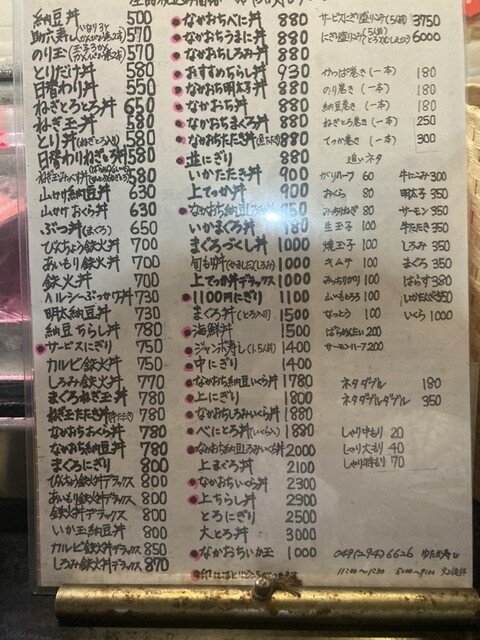 納豆丼 500
570
のり玉 570
とりだけ丼 580
日替わり丼 550
ねぎとろとろ丼 650
ねぎ玉丼 580
とり丼 580
日替わりねぎ玉丼 580
580
山かけ納豆丼 630
山かけおくら丼 630
ぶつ丼(まぐろ) 650
びんちょう鉄火丼 700
あいもり鉄火丼 700
鉄火丼 700
ヘルシーぶっかけ丼 730
明太納豆丼 730
納豆ちらし丼 780
サービスにぎり 750
カルビ鉄火丼 750
しろみ鉄火丼 770
まぐろねぎ玉丼 780
ねぎ玉たたき丼 780
なかおちおくら丼 780
なかおち納豆丼 780
まぐろにぎり 800
びんちょう鉄火丼デラックス 800
あいもり鉄火丼デラックス 800
鉄火丼デラックス 800
いか玉納豆丼 800
カルビ鉄火丼デラックス 850
しろみ鉄火丼デラックス 870
なかおちべに丼 880
なかおちうまに丼 880
なかおちしろみ丼 880
おすすめちらし丼 930
なかおち明太子丼 880
なかおち丼 880
なかおちまぐろ丼 880
なかおちたたき丼 880
並にぎり 880
いかたたき丼 900
上てっか丼 900
なかおち納豆 950
いかまぐろ丼 980
まぐろづくし丼 1000
旬もり丼 1000
上てっか丼デラックス 1000
1100円にぎり 1100
まぐろ丼(とろ入り) 1500
海鮮丼 1500
ジャンボ寿し(1.5人前) 1400
中にぎり 1400
なかおち納豆いくら丼 1780
上にぎり 1800
なかおちしろみいくら丼 1880
べにとろ丼(いくら入) 1880
なかおち納豆しろみいくら丼 2000
上まぐろ丼 2100
なかおちいくら丼 2300
上ちらし丼 2900
とろにぎり 2500
大とろ丼 3000
なかおちいか玉 1000
サービスにぎり盛りこみ(5人前) 3750
にぎり盛りこみ 6000
かっぱ巻き(一本) 180
のり巻き(一本) 180
納豆巻き(一本) 180
ねぎとろ巻き(一本) 250
てっか巻き(一本) 300
追いネタ
がりハーフ 60
おくら 80
みそ玉ねぎ 80
生玉子 100
焼玉子 100
キムチ 100
みっちりのり 100
ムいもとろろ 100
なっとう 100
ばらめんたい 200
サーモンハーフ 200
牛にこみ 300
明太子 350
サーモン 350
牛たたき 350
しろみ 350
まぐろ 350
はらす 380
いかだたき 350
いくら 1000
ネタダブル 180
ネタダブルダブル 350
しゃり中もり 20
しゃり大もり 40
しゃり特もり 70
049(294)6626 ゆたか寿し